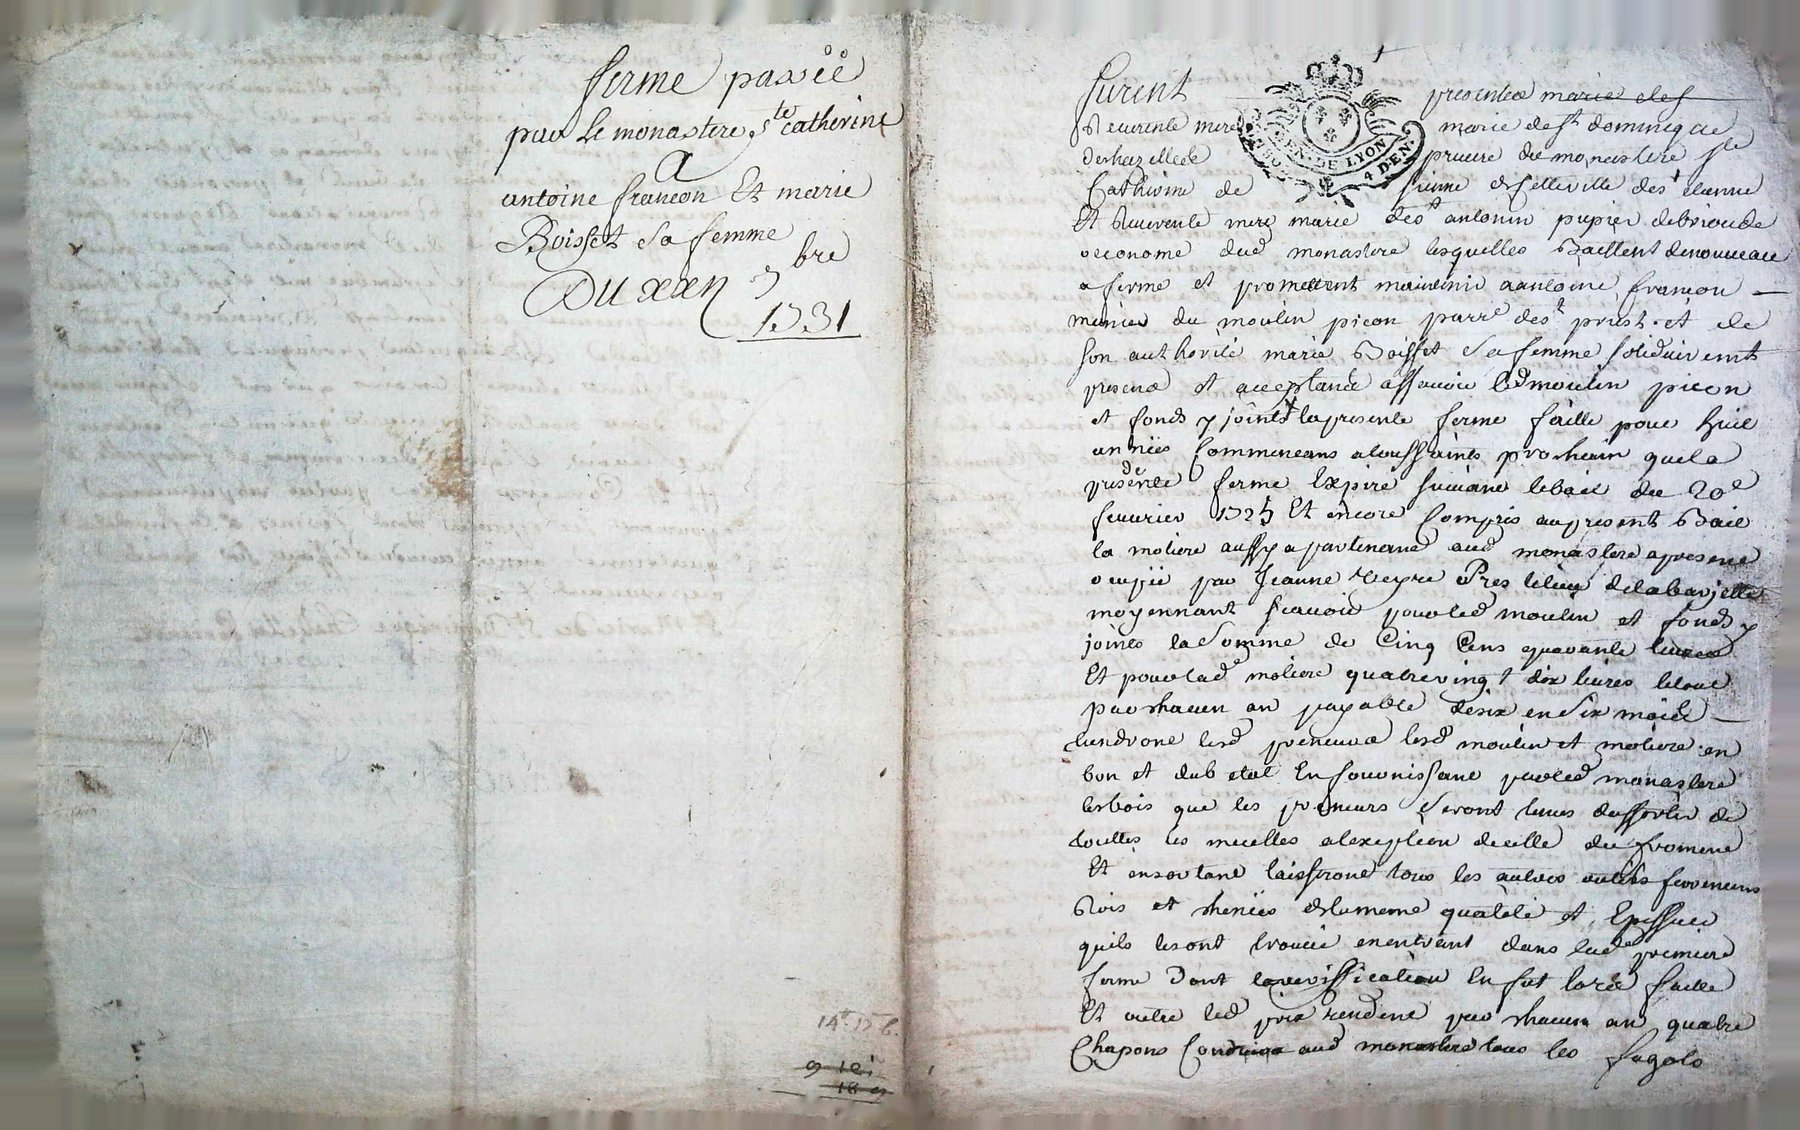 ferme passéé
par Le monastere ste catherine
A
antoine francon Et marie
Boisset Sa femme
DU xxn 7bre
1731
14. 15 6.
9 12
18 9
furent presentes marie des
Reverente mere marie de st dominique
prieure du monastere ste
Catherine de sienne de cette ville de st etienne
Et Reverente mere marie de st antonin pupier de brioude
oeconome dud monastere lesquelles Baillent de nouveau
a ferme et promettent maintenir a antoine francon
munier du moulin picon parre de st priest et de
son authorité marie Boisset Sa femme solidairemt
presens et acceptans assavoir led moulin picon
et fonds y joints la presente ferme faitte pour huit
années Commencans a toussaints prochain que la
présente ferme Expire suivant le bail du 20e
fevrier 1725 Et encore Compris au present Bail
la moliere aussy apartenant aud monastere a present
occupée par Jeanne Veyre
moyennant scavoir pour led moulin et fonds y
joints la Somme de Cinq Cens quarante livres
Et pour lad moliere quatre vingt dix livres le tout
par chacun an payable de six en Six mois
tiendront lesd preneurs lesd moulin et moliere en
bon et dub etat En fournissant par led monastere
les bois que les preneurs Seront tenus
touttes les meulles a l'exception de celle du froment
Et en sortant laisseront tous les autres outils ferrements
Bois et de la meme qualité et Epesseur
quils les ont trouvé en entrant dans lad premiere
ferme Dont la veriffication En fut lors faitte
Et outre led prix rendront par chacun an quatre
Chapons Conduire aud monastere tous les fagots
GEN. DE LYON
4 DEN.